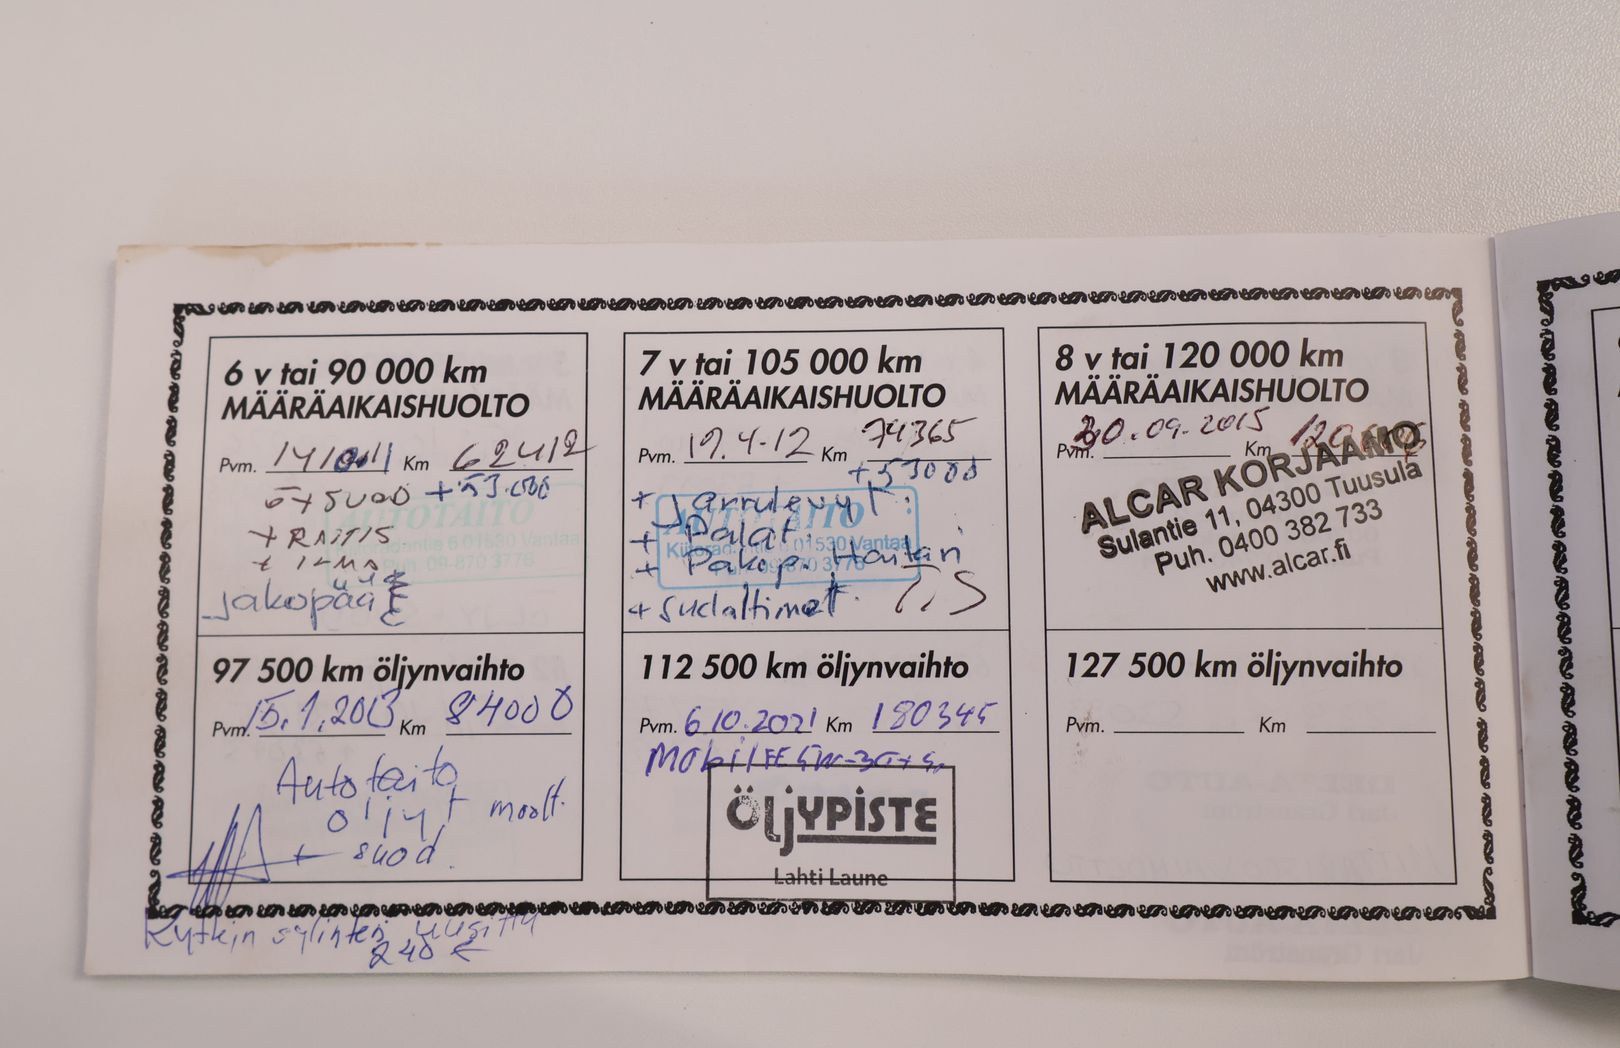 6 v tai 90 000 km
MÄÄRÄAIKAISHUOLTO
Pvm. Km 62412
+53.000
ö+SUOD
+ RAITIS
jakopää
AUTOTAITO
Kiitoradantie 6 01530 Vantaa
Puh. 09-870 3776
97 500 km öljynvaihto
Pvm. 15.1.2013 Km 84000
Autotaito
öljyt moott.
+ suod.
Kytkin sylinteri uusittu
240 €
7 v tai 105 000 km
MÄÄRÄAIKAISHUOLTO
Pvm. 17.4-12 Km 74365
+53000
+ Jarrulevyt.
+ Palat.
+ Pakop. Haitari
+ sudaltimet.
AUTOTAITO
Kiitoradantie 6 01530 Vantaa
Puh. 09-870 3776
112 500 km öljynvaihto
Pvm. 6.10.2021 Km 180345
Mobil FE 5W-30+s.
ÖLJYPISTE
Lahti Laune
8 v tai 120 000 km
MÄÄRÄAIKAISHUOLTO
Pvm. 30.09.2015 Km
ALCAR KORJAAMO
Sulantie 11, 04300 Tuusula
Puh. 0400 382 733
www.alcar.fi
127 500 km öljynvaihto
Pvm. Km